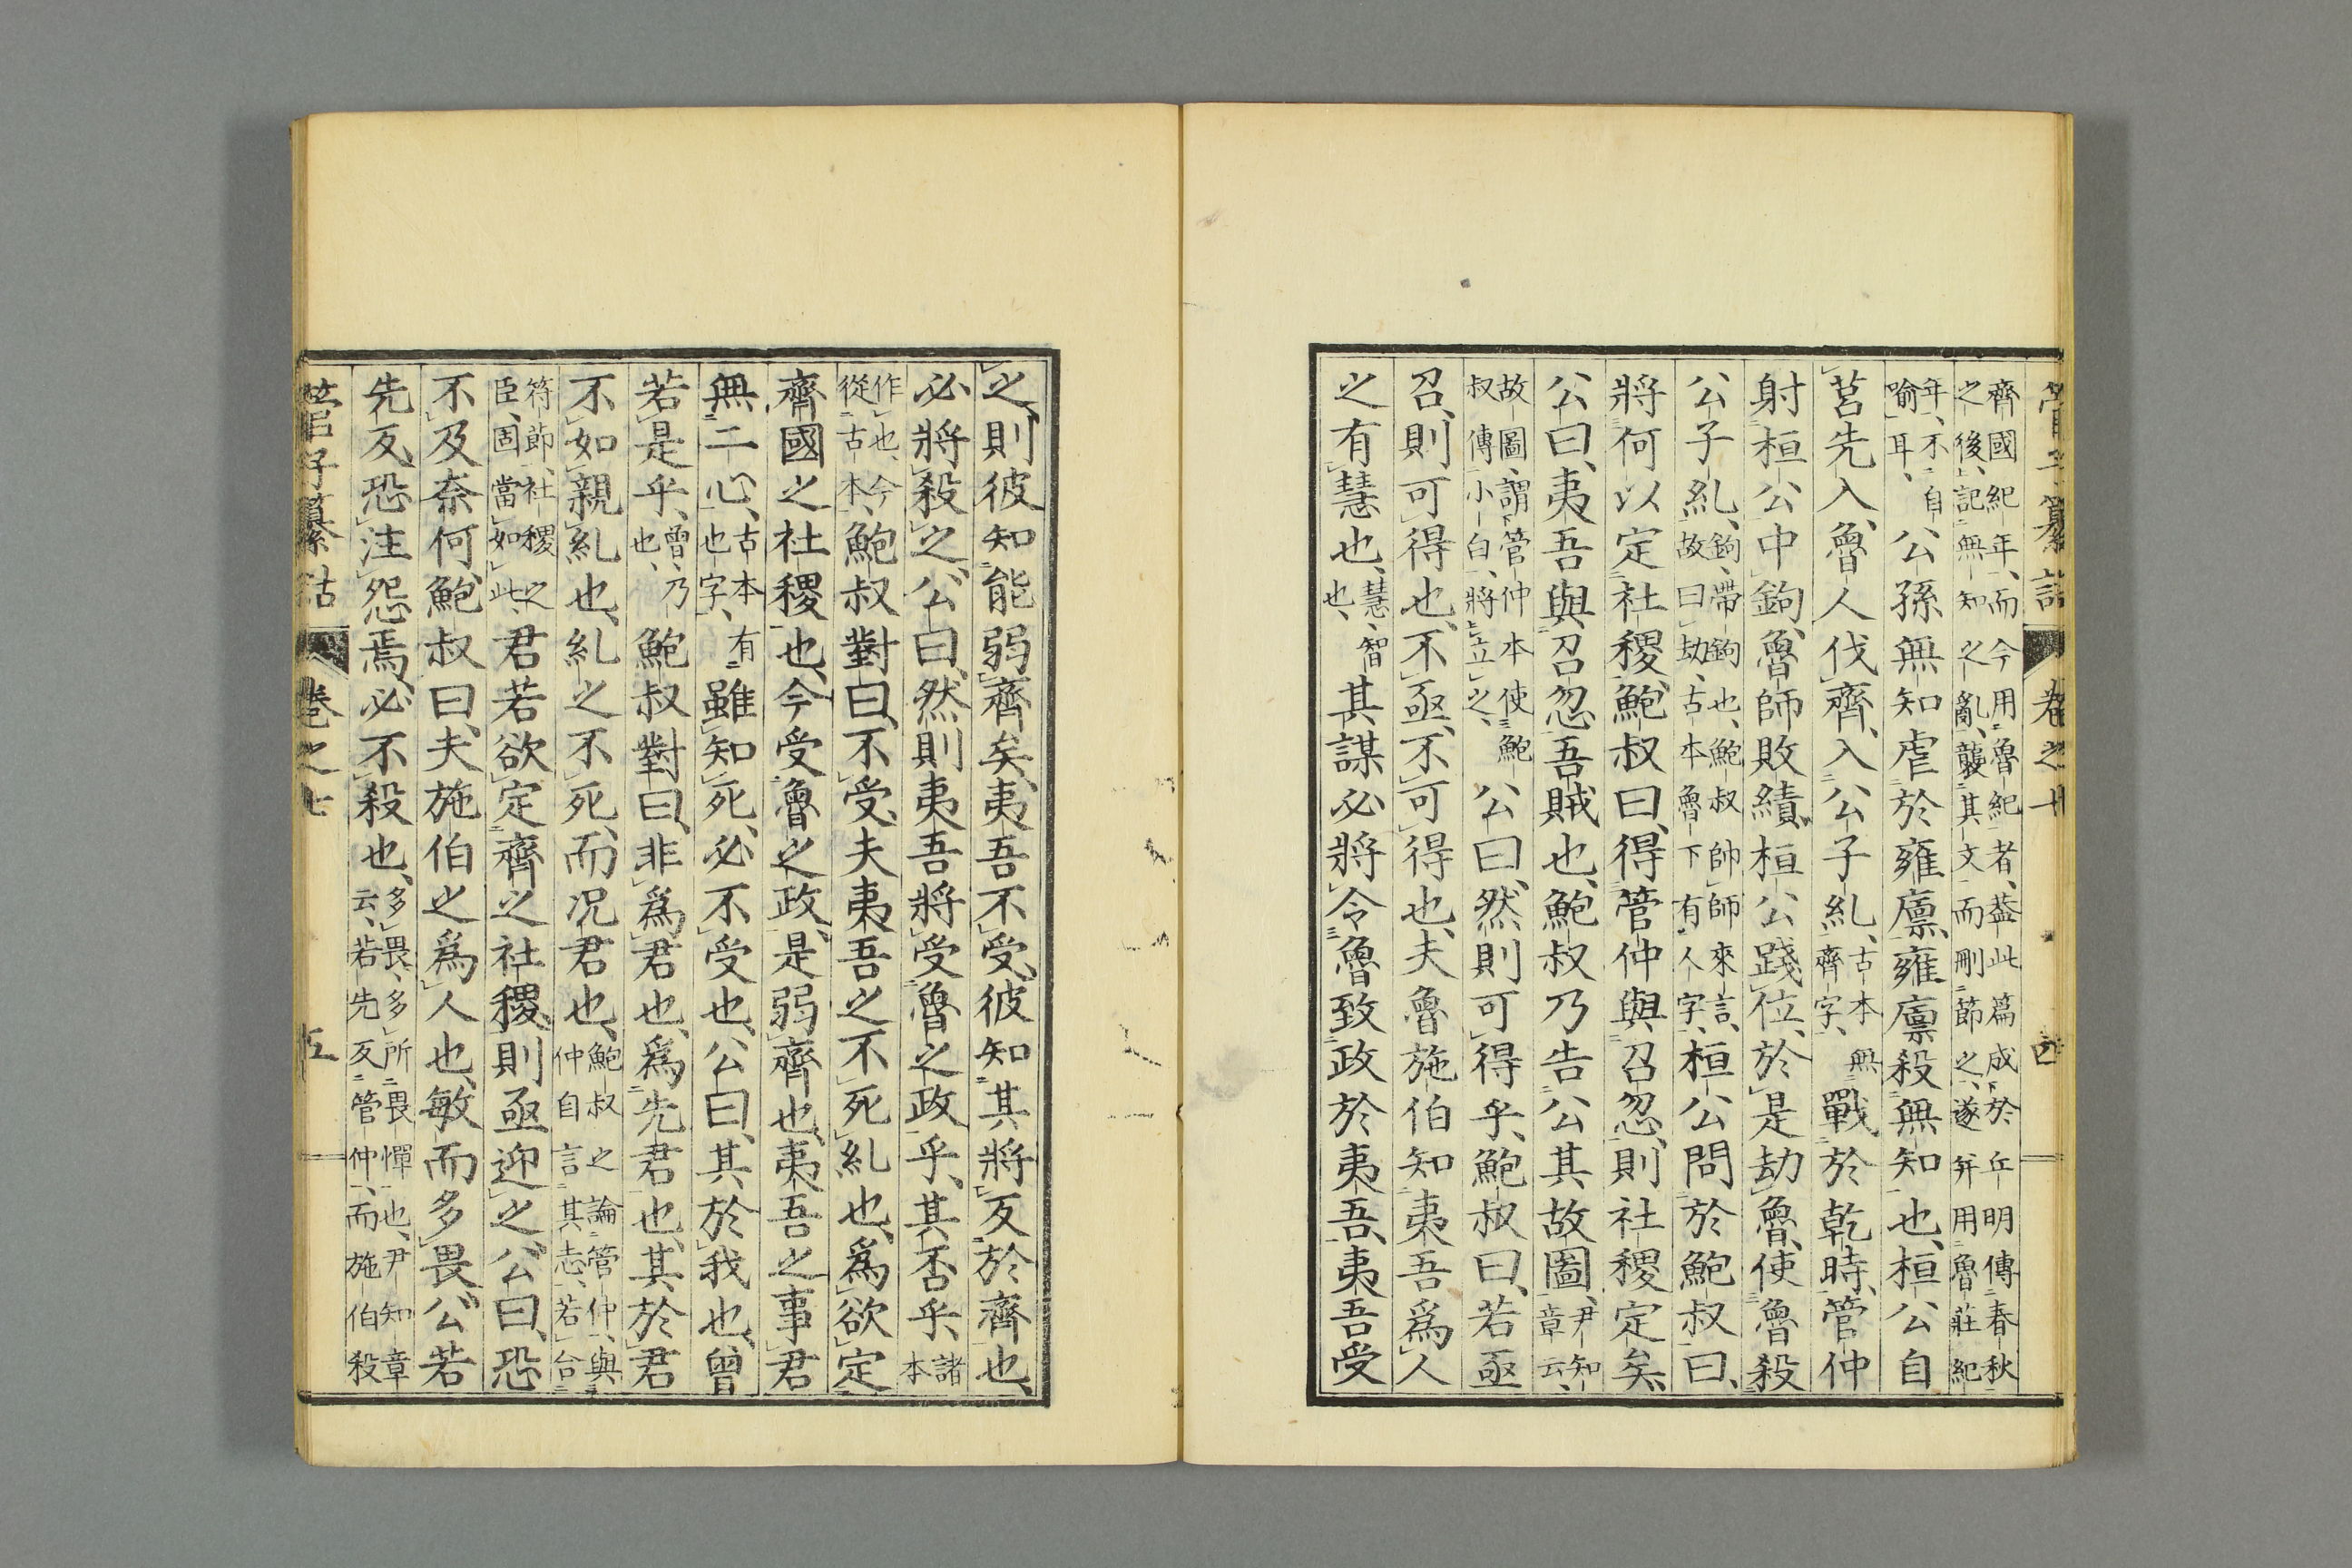 管子纂詁 卷之七 四
齊國紀年、而今用魯紀者、蓋此篇成於丘明傳春秋
之後、記無知之亂、襲其文而刪節之、遂并用魯莊紀
年、不自
喻耳、公孫無知虐於雍廩、雍廩殺無知也、桓公自
莒先入、魯人伐齊、入公子糺、古本無
齊字、戰於乾時、管仲
射桓公中鉤、魯師敗績、桓公踐位、於是劫魯、使魯殺
公子糺、鉤、帶鉤也、鮑叔帥師來言、
故曰劫、古本魯下有人字、桓公問於鮑叔曰、
將何以定社稷、鮑叔曰、得管仲與召忽、則社稷定矣、
公曰、夷吾與召忽、吾賊也、鮑叔乃告公其故圖、尹知
章云、
故圖、謂管仲本使鮑
叔傅小白、將立之、公曰、然則可得乎、鮑叔曰、若亟
召、則可得也、不亟、不可得也、夫魯施伯知夷吾爲人
之有慧也、慧、智
也、其謀必將令魯致政於夷吾、夷吾受
之、則彼知能弱齊矣、夷吾不受、彼知其將反於齊也、
必將殺之、公曰、然則夷吾將受魯之政乎、其否乎、諸
本
作也、今
從古本、鮑叔對曰、不受、夫夷吾之不死糺也、爲欲定
齊國之社稷也、今受魯之政、是弱齊也、夷吾之事君
無二心、古本有
也字、雖知死、必不受也、公曰、其於我也、曾
若是乎、曾、乃
也、鮑叔對曰、非爲君也、爲先君也、其於君
不如親糺也、糺之不死、而况君也、鮑叔之論管仲、與
仲自言其志、若合
符節、社稷之
臣、固當如此、君若欲定齊之社稷、則亟迎之、公曰、恐
不及奈何、鮑叔曰、夫施伯之爲人也、敏而多畏、公若
先反、恐注怨焉、必不殺也、多畏、多所畏憚也、尹知章
云、若先反管仲、而施伯殺
管子纂詁 卷之七 五